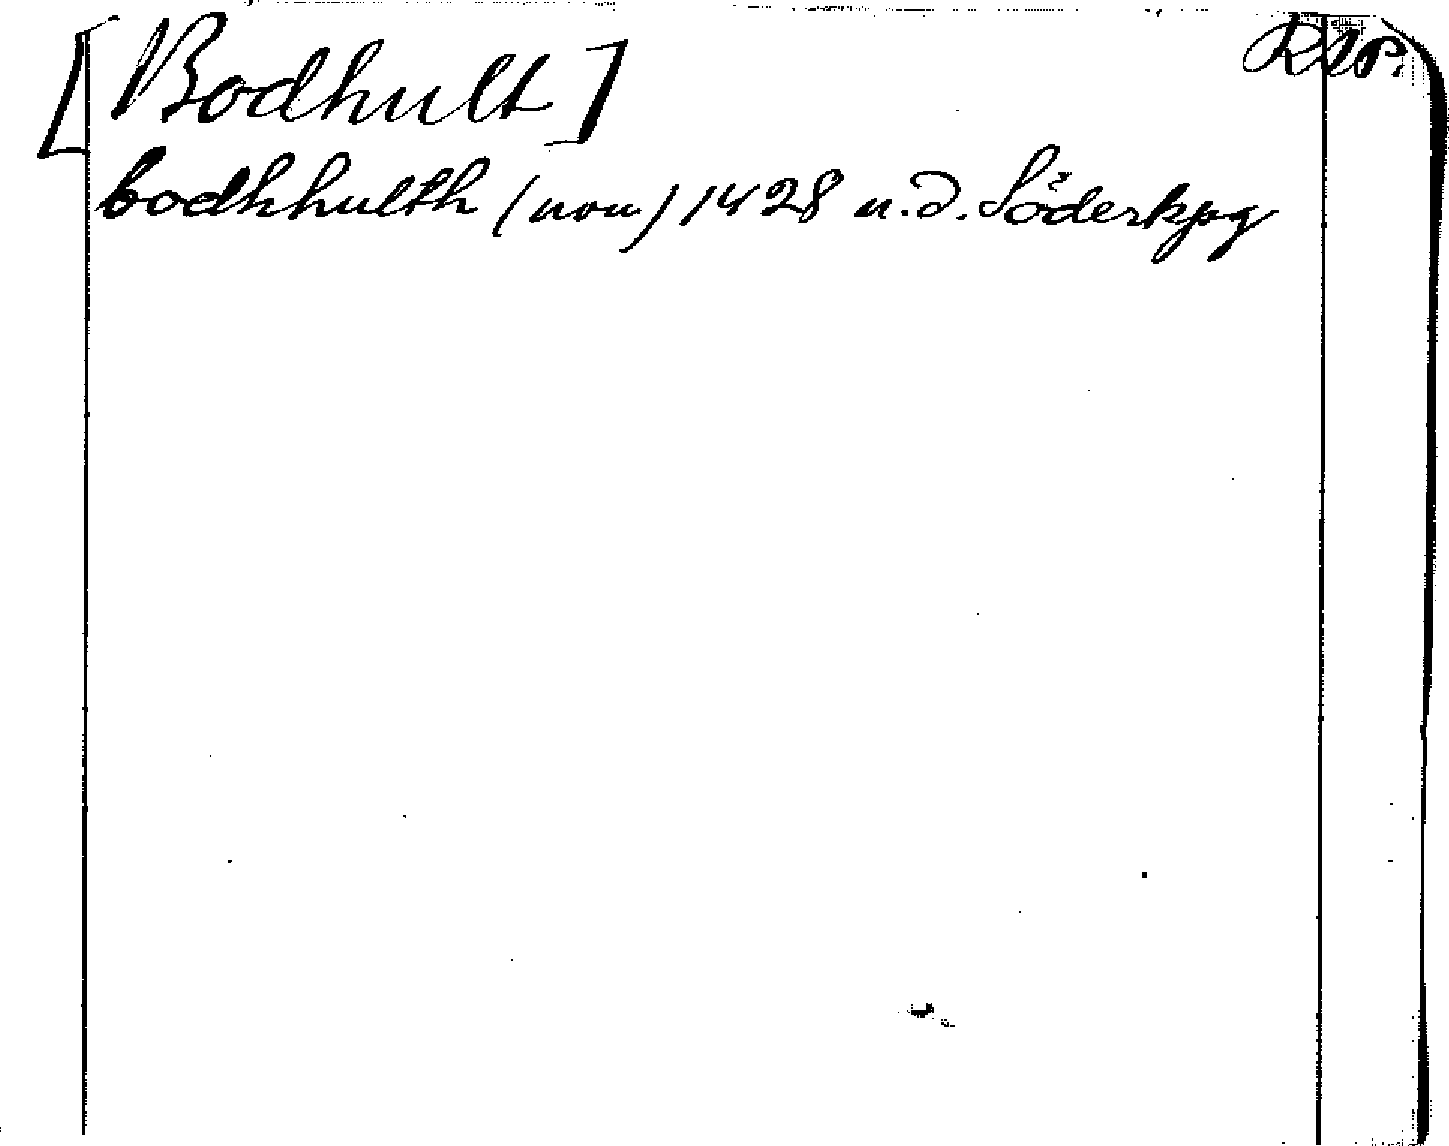 [Bodhult]
bodhhulth (nom) 1428 u.d. Söderkpg